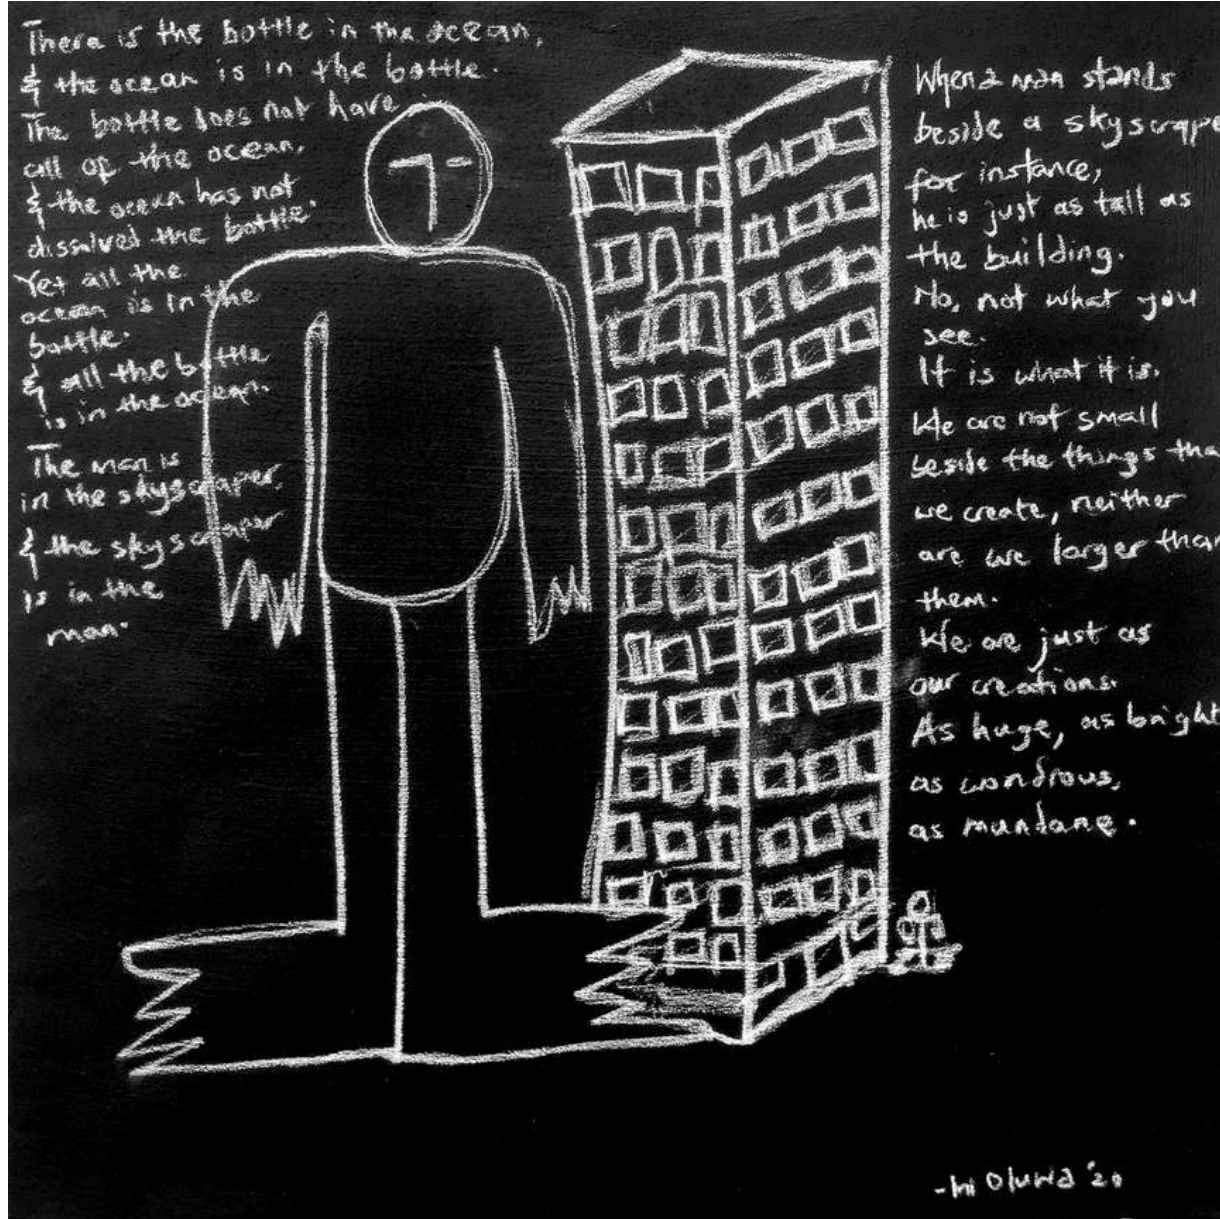 There is the bottle in the ocean,
& the ocean is in the bottle.
The bottle does not have
all of the ocean,
& the ocean has not
dissolved the bottle.
Yet all the
ocean is in the
bottle.
& all the bottle
is in the ocean.
The man is
in the skyscraper,
& the skyscraper
is in the
man.
When a man stands
beside a skyscrape
for instance,
he is just as tall as
the building.
No, not what you
see.
It is what it is.
We are not small
beside the things tha
we create, neither
are we larger than
them.
We are just as
our creations.
As huge, as bright
as wondrous,
as mundane.
Oluwa '20